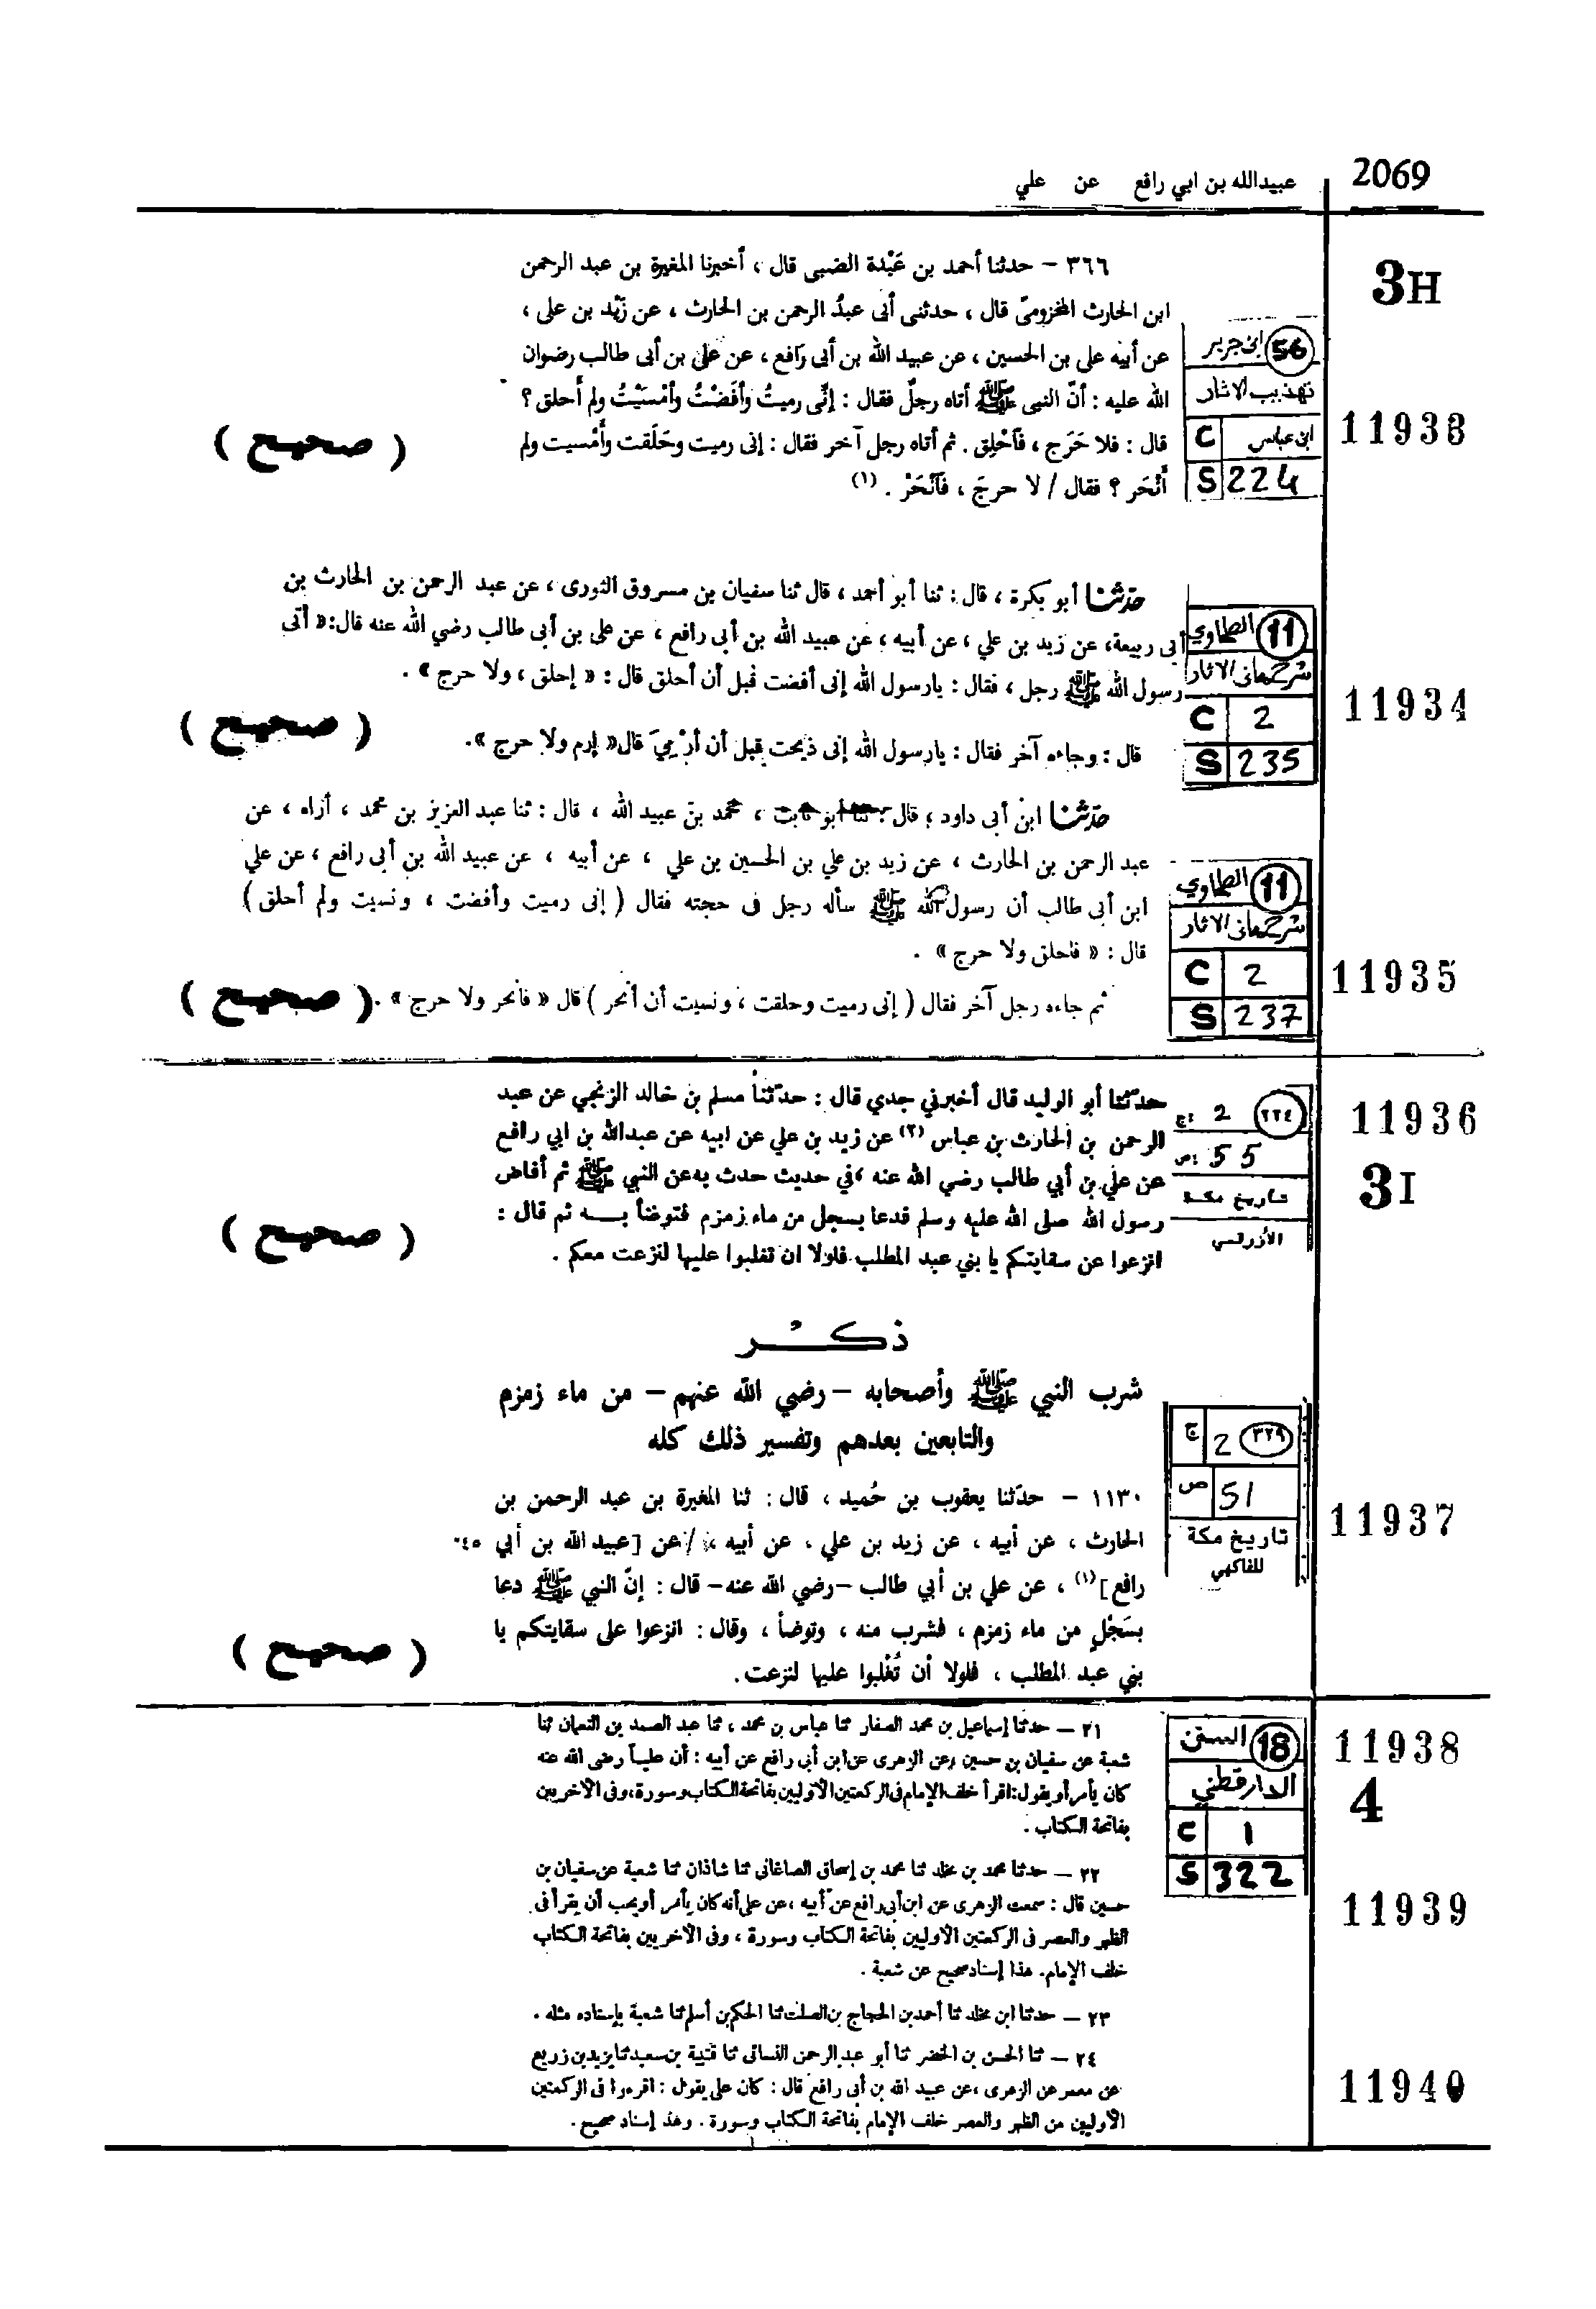 2069
عبيدالله بن ابي رافع عن علي
3H
٣٦٦ – حدثنا أحمد بن عَبْدة الضبى قال ، أخبرنا المغيرة بن عبد الرحمن
ابن الحارث المخزومىّ قال ، حدثنى أبى عبدُ الرحمن بن الحارث ، عن زَيْد بن على ،
عن أبيه على بن الحسين ، عن عبيد الله بن أبى رافع ، عن على بن أبى طالب رضوان
الله عليه : أنّ النبى ﷺ أتاه رجلٌ فقال : إنّى رميتُ وأفَضْتُ وأمْسَيْتُ ولم أحلق ؟
قال : فلا حَرَج ، فَآحْلِق . ثم أتاه رجل آخر فقال : إنى رميت وحَلَقت وأَمْسيت ولم
أَنْحَر ؟ فقال / لا حرجَ ، فَآنْحَرْ . (١)
56 ابن جرير
تهذيب الاثار
C ابن عباس
S 224
11933
( صحيح )
حدّثنا أبو بكرة ، قال : ثنا أبو أحمد ، قال ثنا سفيان بن مسروق الثورى ، عن عبد الرحمن بن الحارث بن
أبى ربيعة، عن زيد بن علي ، عن أبيه ، عن عبيد الله بن أبى رافع ، عن على بن أبى طالب رضي الله عنه قال: « أتى
رسول الله ﷺ رجل ، فقال : يارسول الله إنى أفضت قبل أن أحلق قال : « إحلق ، ولا حرج » .
قال : وجاءه آخر فقال : يارسول الله إنى ذبحت قبل أن أرْمِيَ قال « إرم ولا حرج ».
11 الطحاوي
شرح معانى الاثار
C 2
S 235
11934
( صحيح )
حدّثنا ابن أبى داود ، قال : ثنا أبو ثابت ، محمد بن عبيد الله ، قال : ثنا عبد العزيز بن محمد ، أراه ، عن
عبد الرحمن بن الحارث ، عن زيد بن علي بن الحسين بن علي ، عن أبيه ، عن عبيد الله بن أبى رافع ، عن علي
ابن أبى طالب أن رسول الله ﷺ سأله رجل فى حجته فقال ( إنى رميت وأفضت ، ونسيت ولم أحلق )
قال : « فاحلق ولا حرج » .
ثم جاءه رجل آخر فقال ( إنى رميت وحلقت ، ونسيت أن أنحر ) قال « فانحر ولا حرج » .
11 الطحاوي
شرح معانى الاثار
C 2
S 237
11935
( صحيح )
حدّثنا أبو الوليد قال أخبرني جدي قال : حدّثنا مسلم بن خالد الزنجي عن عبد
الرحمن بن الحارث بن عباس (٢) عن زيد بن علي عن ابيه عن عبدالله بن ابي رافع
عن علي بن أبي طالب رضي الله عنه ، في حديث حدث به عن النبي ﷺ ثم أفاض
رسول الله صلى الله عليه وسلم فدعا بسجل من ماء زمزم فتوضأ بــه ثم قال :
انزعوا عن سقايتكم يا بني عبد المطلب فلولا ان تغلبوا عليها لنزعت معكم .
٢٢٤ ج: 2
ص: 55
تاريخ مكة
الأزرقي
11936
3I
( صحيح )
ذكــر
شرب النبي ﷺ وأصحابه – رضي الله عنهم – من ماء زمزم
والتابعين بعدهم وتفسير ذلك كله
١١٣٠ – حدّثنا يعقوب بن حُميد ، قال : ثنا المغيرة بن عبد الرحمن بن
الحارث ، عن أبيه ، عن زيد بن علي ، عن أبيه ، / عن [عبيد الله بن أبي ٤٥٠
رافع] (١) ، عن علي بن أبي طالب – رضي الله عنه – قال : إنّ النبي ﷺ دعا
بسَجْلٍ من ماء زمزم ، فشرب منه ، وتوضأ ، وقال : انزعوا على سقايتكم يا
بني عبد المطلب ، فلولا أن تُغْلبوا عليها لنزعت.
٣٢٩ 2 ج
ص 51
تاريخ مكة
للفاكهي
11937
( صحيح )
٢١ – حدثنا إسماعيل بن محمد الصفار ثنا عباس بن محمد ، ثنا عبد الصمد بن النعمان ثنا
شعبة عن سفيان بن حسين ، عن الزهرى عن ابن أبى رافع عن أبيه : أن علياً رضى الله عنه
كان يأمر أو يقول : اقرأ خلف الإمام فى الركعتين الأوليين بفاتحة الكتاب وسورة ، وفى الأخريين
بفاتحة الكتاب .
٢٢ – حدثنا محمد بن مخلد ثنا محمد بن إسحاق الصاغانى ثنا شاذان ثنا شعبة عن سفيان بن
حسين قال : سمعت الزهرى عن ابن أبى رافع عن أبيه ، عن على أنه كان يأمر أو يحب أن يقرأ فى
الظهر والعصر فى الركعتين الأوليين بفاتحة الكتاب وسورة ، وفى الأخريين بفاتحة الكتاب
خلف الإمام. هذا إسناد صحيح عن شعبة .
٢٣ – حدثنا ابن مخلد ثنا أحمد بن الحجاج بن الصلت ثنا الحكم بن أسلم ثنا شعبة بإسناده مثله .
٢٤ – ثنا الحسن بن الخضر ثنا أبو عبد الرحمن النسائى ثنا قتيبة بن سعيد ثنا يزيد بن زريع
عن معمر عن الزهرى ، عن عبيد الله بن أبى رافع قال : كان على يقول : اقرءوا فى الركعتين
الأوليين من الظهر والعصر خلف الإمام بفاتحة الكتاب وسورة . وهذ إسناد صحيح .
18 السنن
الدارقطني
C 1
S 322
11938
4
11939
11940